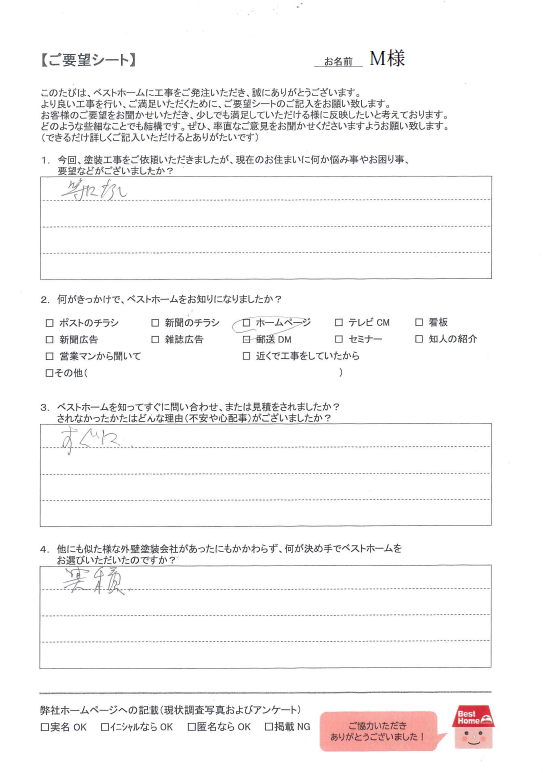 【ご要望シート】
お名前 M様
このたびは、ベストホームに工事をご発注いただき、誠にありがとうございます。
より良い工事を行い、ご満足いただくために、ご要望シートのご記入をお願い致します。
お客様のご要望をお聞かせいただき、少しでも満足していただける様に反映したいと考えております。
どのような些細なことでも結構です。ぜひ、率直なご意見をお聞かせくださいますようお願い致します。
(できるだけ詳しくご記入いただけるとありがたいです)
1. 今回、塗装工事をご依頼いただきましたが、現在のお住まいに何か悩み事やお困り事、
要望などがございましたか?
特になし
2. 何がきっかけで、ベストホームをお知りになりましたか?
□ ポストのチラシ □ 新聞のチラシ □ ホームページ □ テレビCM □ 看板
□ 新聞広告 □ 雑誌広告 □ 郵送DM □ セミナー □ 知人の紹介
□ 営業マンから聞いて □ 近くで工事をしていたから
□その他( )
3. ベストホームを知ってすぐに問い合わせ、または見積をされましたか?
されなかったかたはどんな理由(不安や心配事)がございましたか?
すぐに
4. 他にも似た様な外壁塗装会社があったにもかかわらず、何が決め手でベストホームを
お選びいただいたのですか?
実績
弊社ホームページへの記載(現状調査写真およびアンケート)
□実名 OK □イニシャルなら OK □匿名なら OK □掲載 NG
ご協力いただき
ありがとうございました!
Best
Home